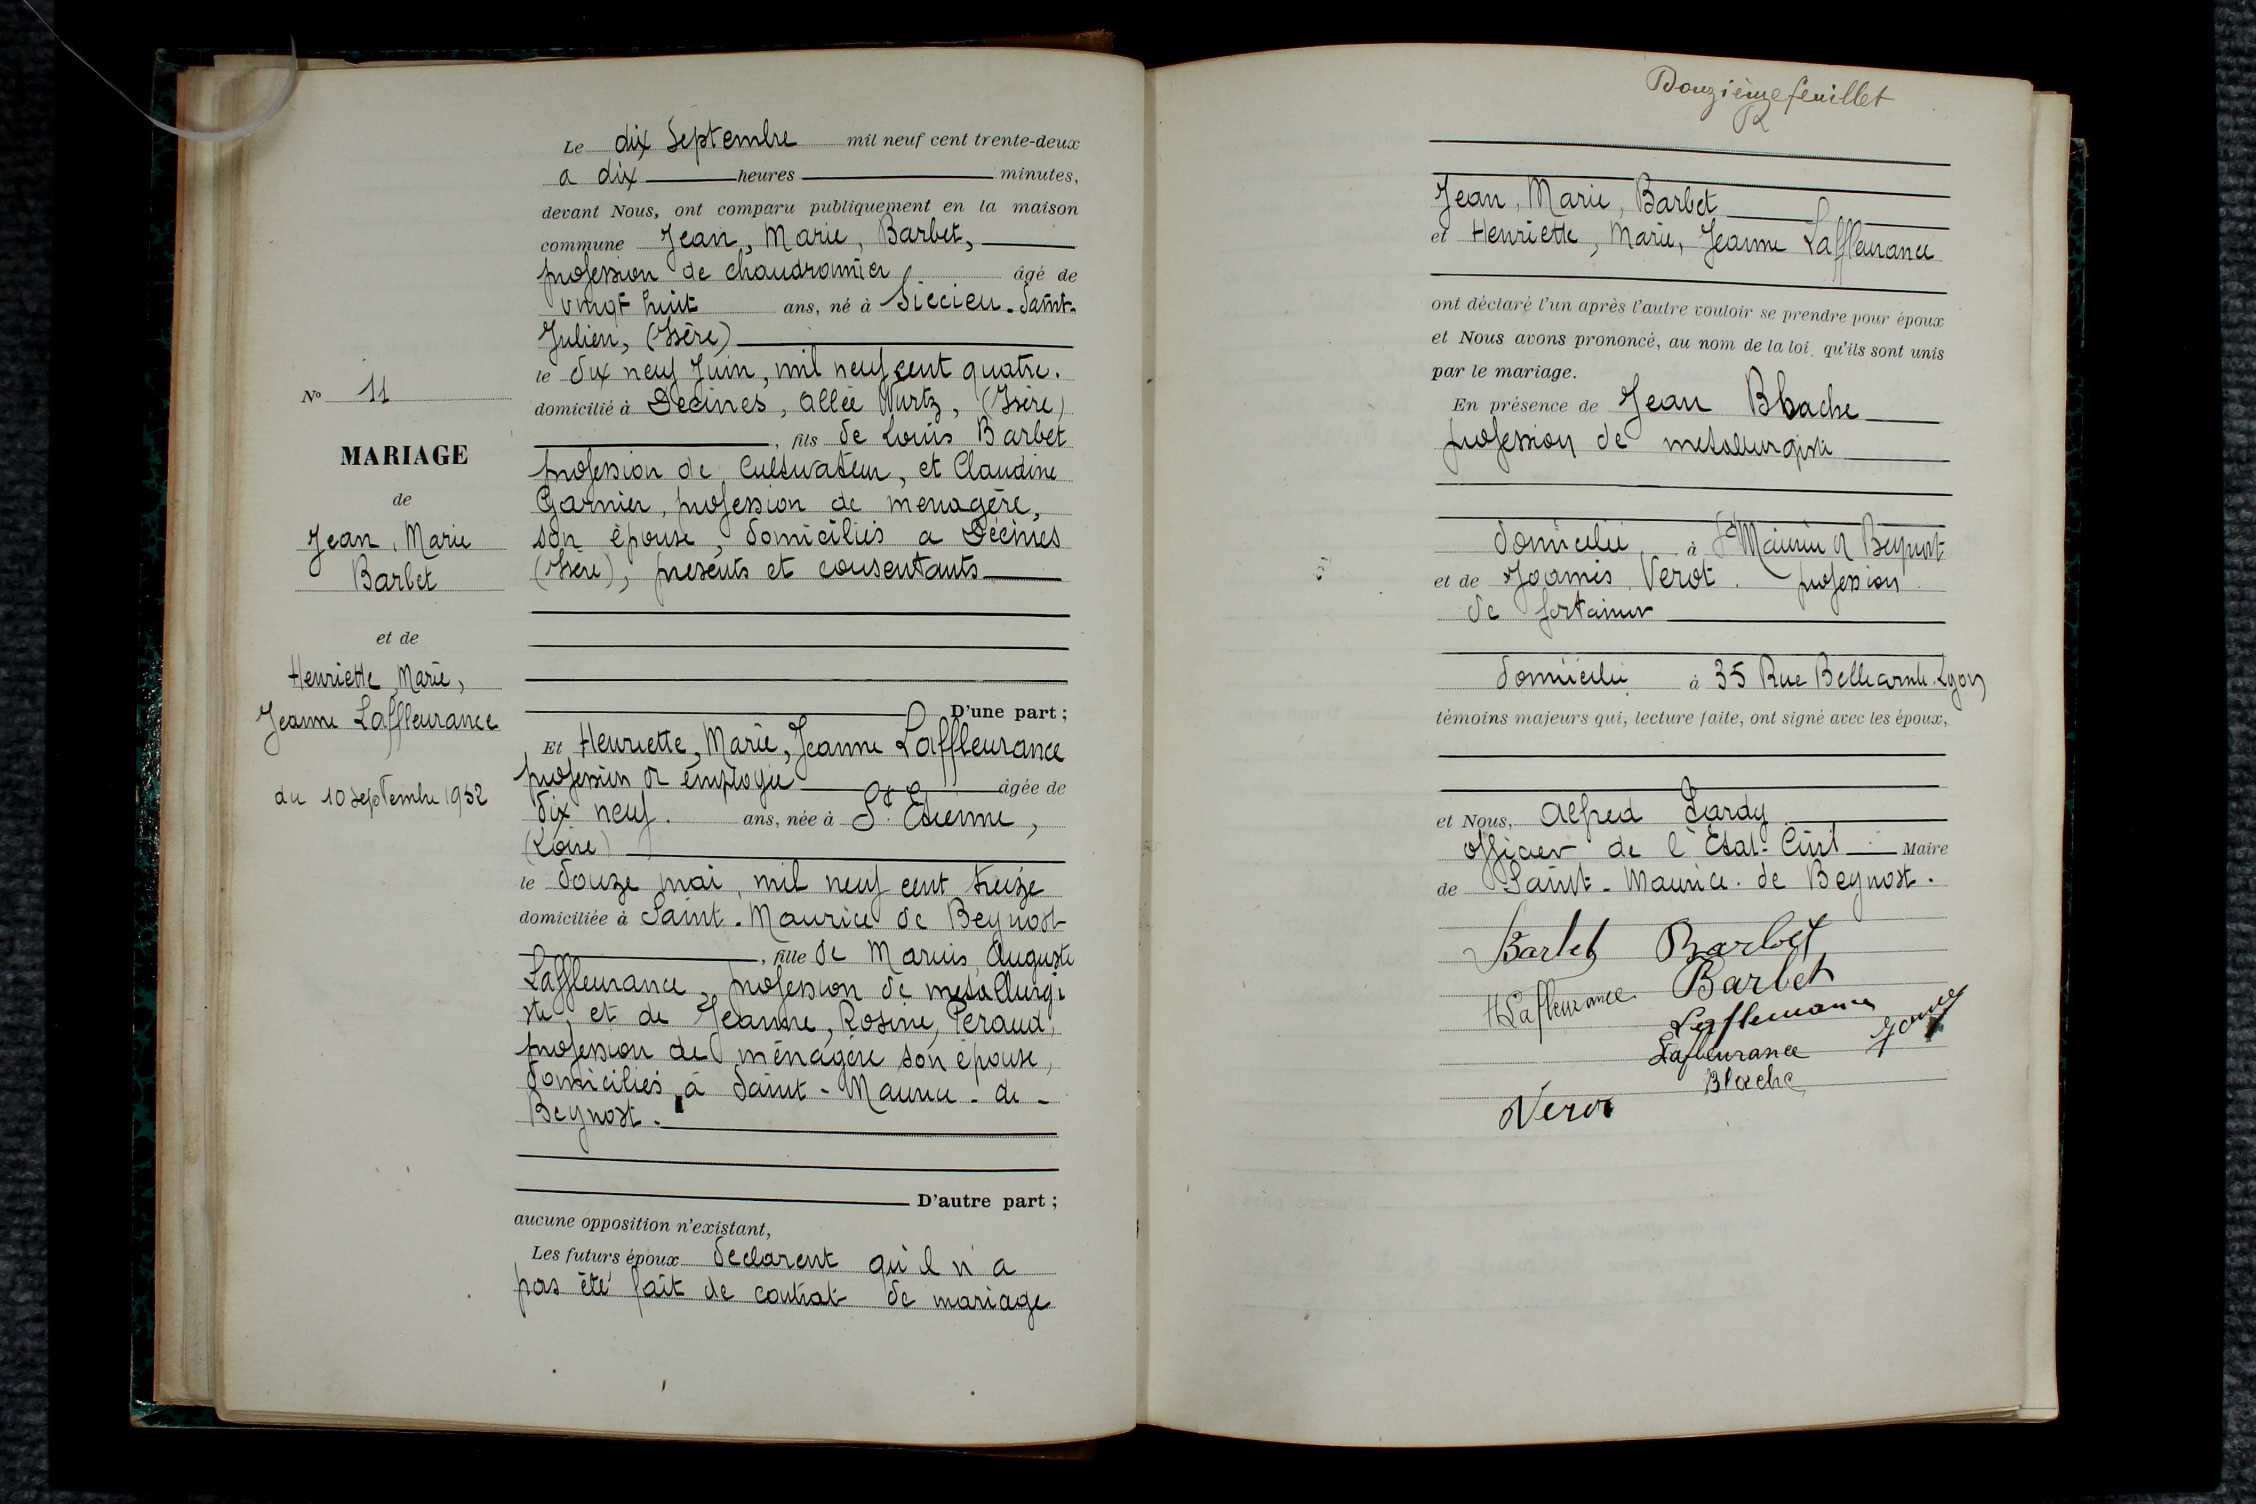 Le dix Septembre mil neuf cent trente-deux
a dix heures minutes,
devant Nous, ont comparu publiquement en la maison
commune Jean, Marie, Barbet,
profession de chaudronnier âgé de
vingt huit ans, né à Siccieu-Saint-
Julien, (Isère)
le dix neuf Juin, mil neuf cent quatre.
domicilié à Décines, allée Wurtz, (Isère)
, fils de Louis Barbet
profession de Cultivateur, et Claudine
Garnier, profession de menagère,
son épouse, domiciliés a Décines
(Isère), presents et consentants
D'une part ;
Et Henriette, Marie, Jeanne Laffleurance
profession d employée âgée de
dix neuf. ans, née à St. Etienne,
(Loire)
le douze mai, mil neuf cent treize
domiciliée à Saint-Maurice de Beynost
, fille de Marius Auguste
Laffleurance, profession de metallurgi
ste et de Jeanne, Rosine, Peraud,
profession de ménagère son épouse,
domiciliés à Saint-Maurice-de-
Beynost.
D'autre part ;
aucune opposition n'existant,
Les futurs époux declarent qu'il n'a
pas été fait de contrat de mariage
No 11
MARIAGE
de
Jean, Marie
Barbet
et de
Henriette Marie,
Jeanne Laffleurance
du 10 septembre 1932
Douzième feuillet
Jean, Marie, Barbet
et Henriette, Marie, Jeanne Laffleurance
ont déclaré l'un après l'autre vouloir se prendre pour époux
et Nous avons prononcé, au nom de la loi, qu'ils sont unis
par le mariage.
En présence de Jean Blache
profession de metallurgiste
domicilié à St Maurice d Beynost
et de Joannis Verot. profession
de
domicilié à 35 Rue Lyon
témoins majeurs qui, lecture faite, ont signé avec les époux,
et Nous, Alfred Lardy
officier de l'Etat-Civil Maire
de Saint-Maurice de Beynost.
Barbet Barbet
HLafleurance Barbet
Lafleurance
Lafleurance
Blache
Verot